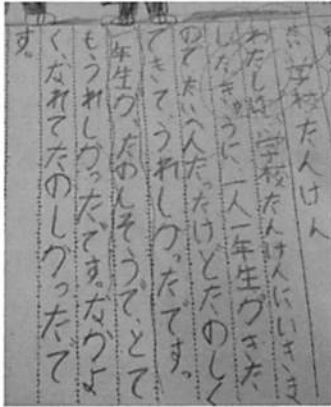 学校たんけん
わたしは、学校たんけんにいきま
した。きゅうに、一人一年生がきた
のでたいへんだったけどたのしく
できて、うれしかったです。
一年生が、たのしそうで、とて
もうれしかったです。なかよ
く、なれてたのしかったで
す。